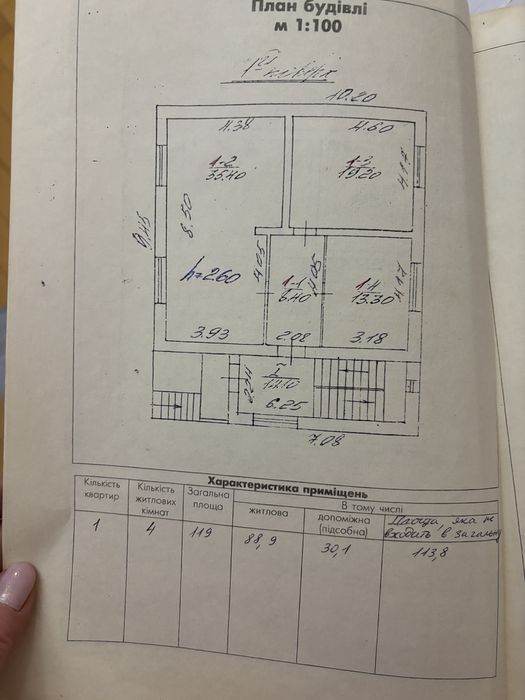 План будівлі
м 1:100
1ий поверх
10.20
4.38
4.60
1-2
35.40
1-3
19.20
4.17
9.45
8.50
4.05
4.05
h=2.60
1-1
6.40
1-4
13.30
4.17
3.93
2.08
3.18
I
12.10
6.25
7.08
Характеристика приміщень
Кількість квартир
Кількість житлових кімнат
Загальна площа
В тому числі
житлова
допоміжна (підсобна)
Площа, яка не входить в загальну
1
4
119
88,9
30,1
113,8